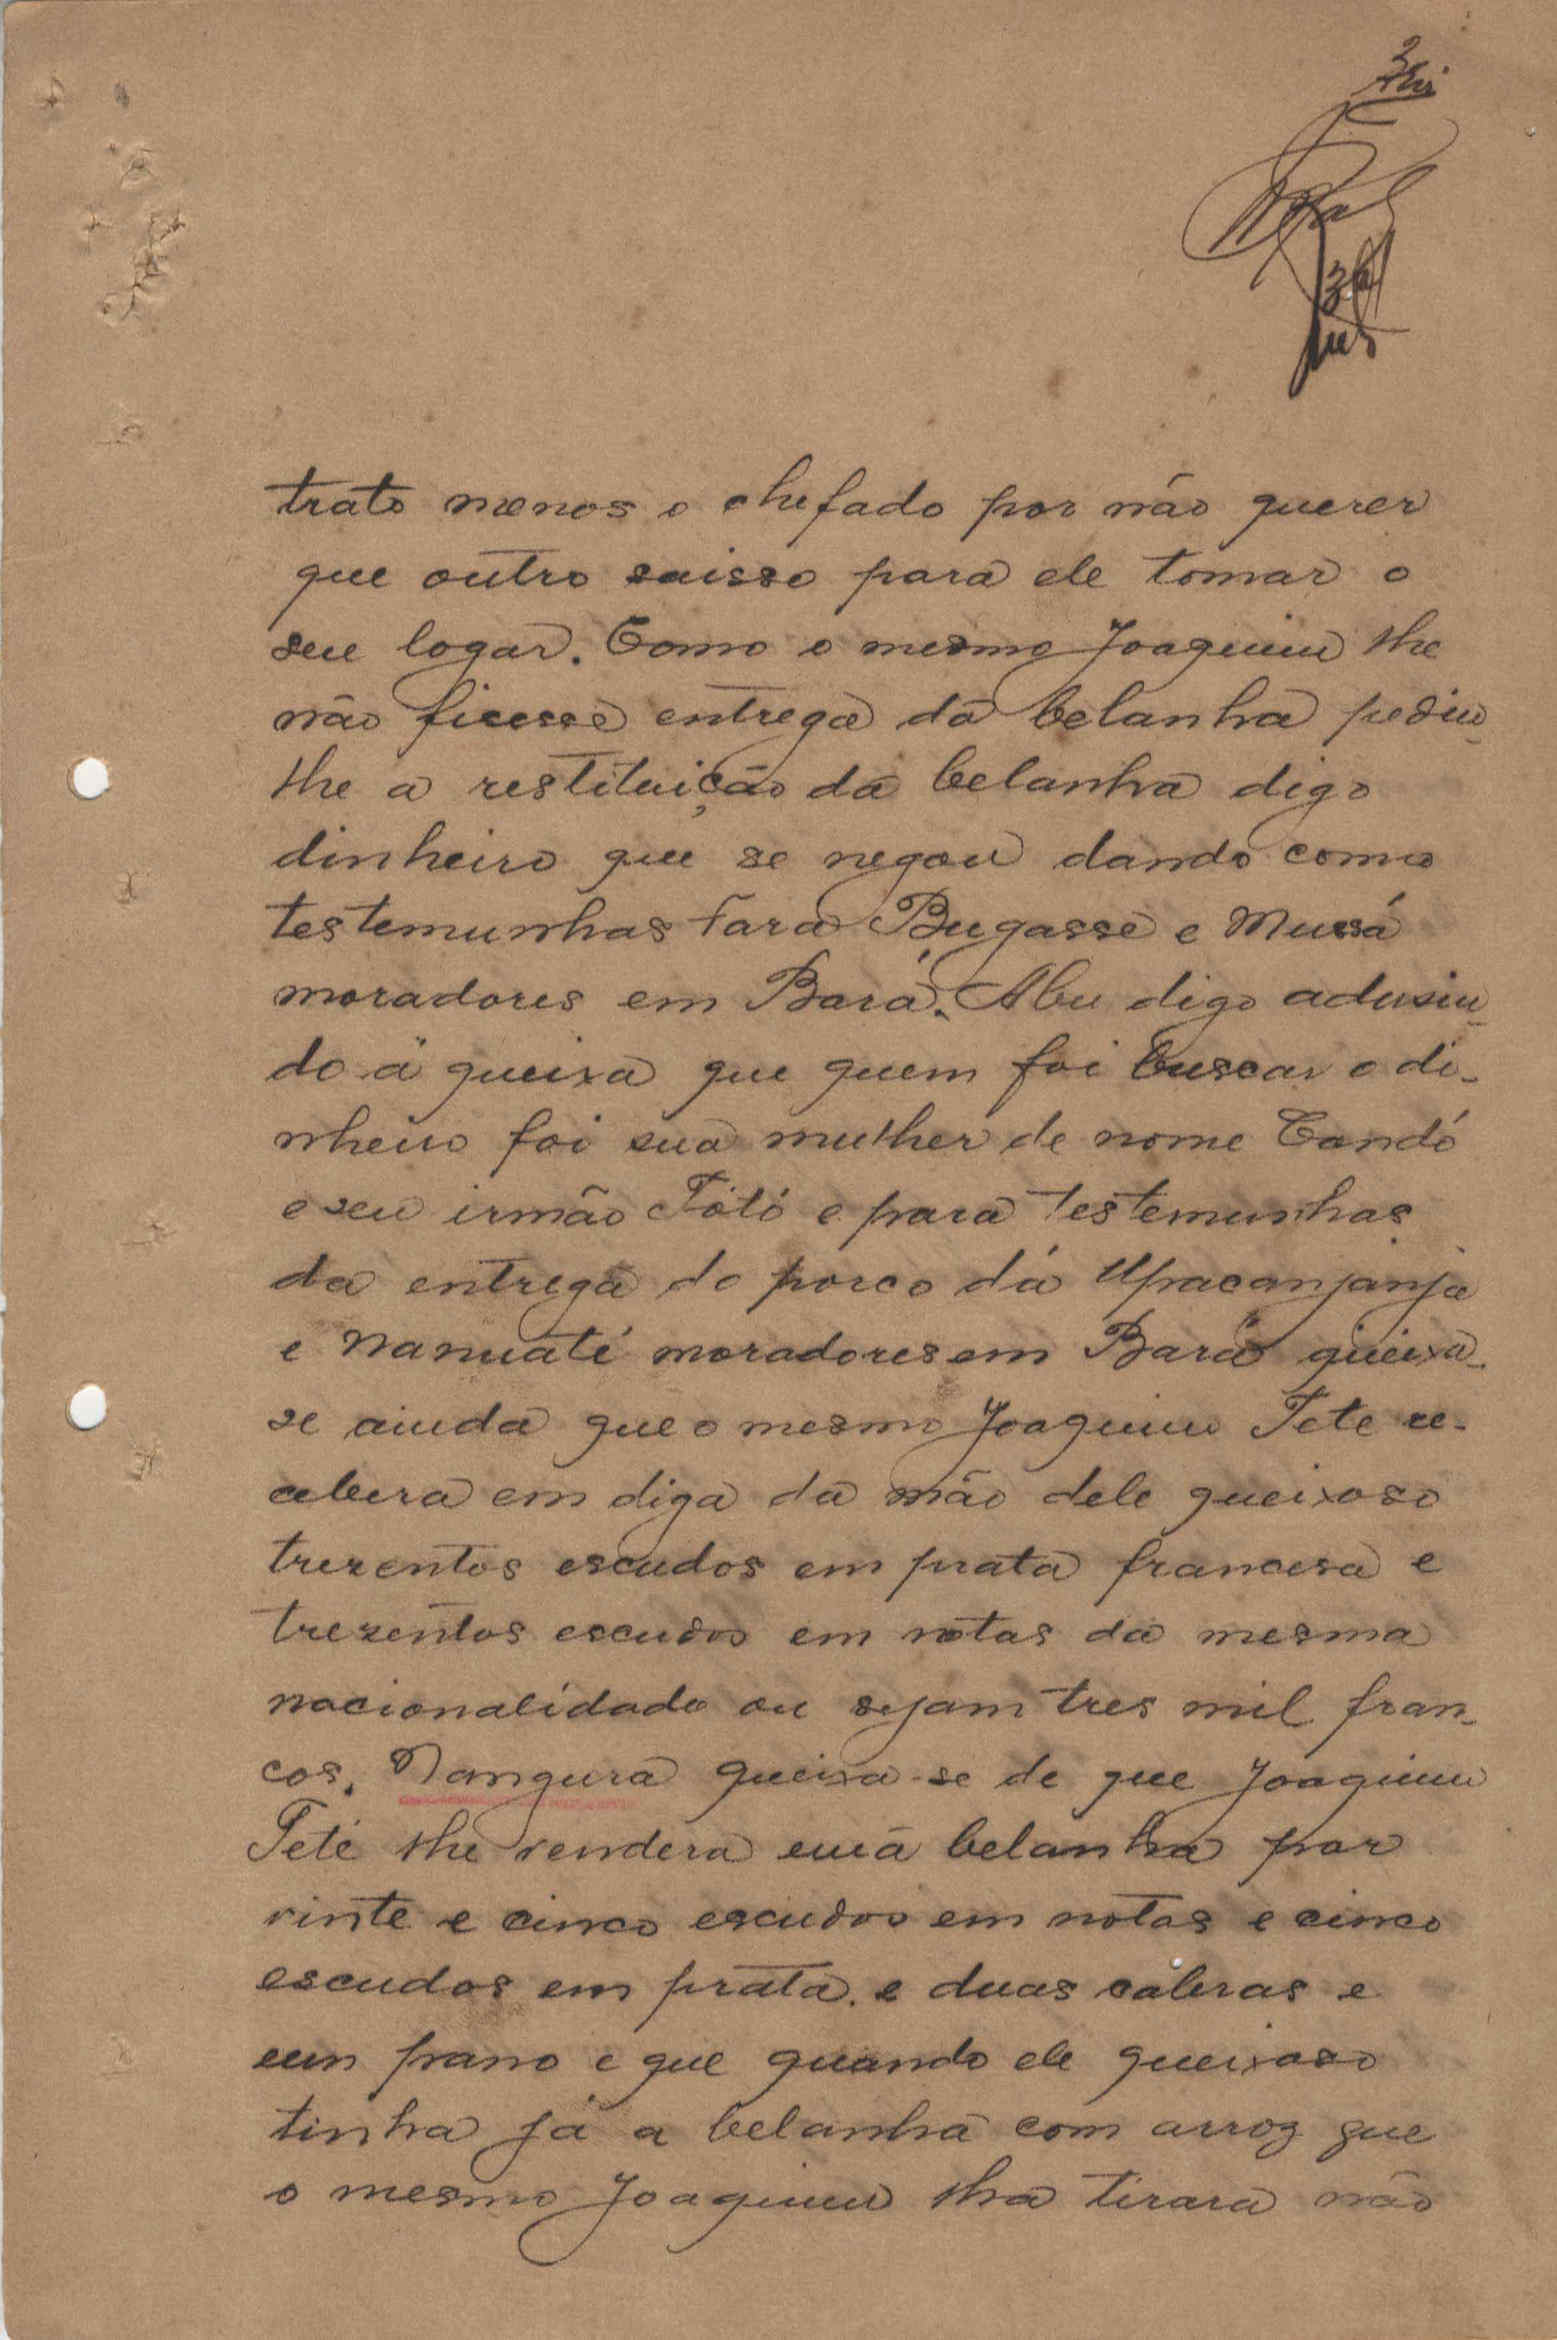 3
trato menos o chefado por não querer
que outro saisse para ele tomar o
seu logar. Como o mesmo Joaquim lhe
não ficesse entrega da belanha pediu-
lhe a restituição da belanha digo
dinheiro que se negou dando como
testemunhas Fara Bugasse e Mussá
moradores em Bará. Abu digo adusin-
do á queixa que quem foi buscar o di-
nheiro foi sua mulher de nome Candó
e seu irmão Tótó e para testemunhas
da entrega do porco dá Upacanjanja
e Nanuaté moradores em Bará queixa-
se ainda que o mesmo Joaquim Tete re-
cebera em diga da mão dele queixoso
trezentos escudos em prata francesa e
trezentos escudos em notas da mesma
nacionalidade ou sejam tres mil fran-
cos. Nangura queixa-se de que Joaquim
Teté lhe vendera uma belanha por
vinte e cinco escudos em notas e cinco
escudos em prata e duas cabras e
um pano e que quando ele queixoso
tinha já a belanha com arroz que
o mesmo Joaquim lha tirara não